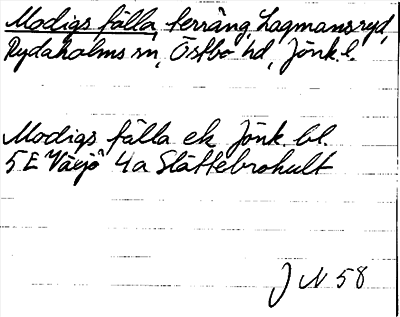 Modigs fälla, terräng, Lagmansryd,
Rydaholms sn, Östbo hd, Jönk. l.
Modigs fälla ek. Jönk. bl.
5 E Växjö 4a Slättebrohult
J N 58